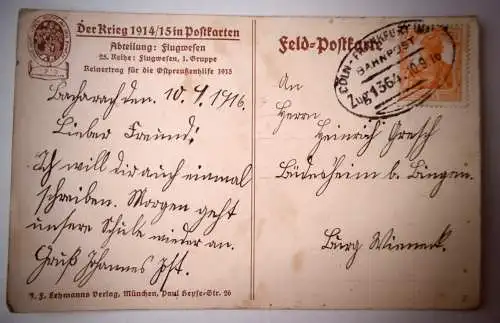 Der Krieg 1914/15 in Postkarten
Abteilung: Flugwesen
25. Reihe: Flugwesen, 1. Gruppe
Reinertrag für die Ostpreußenhilfe 1915
Bacharach den. 10. 9. 1916.
Lieber Freund!
Ich will dir auch einmal
schreiben. Morgen geht
unsere Schule wieder an.
Gruß Johannes Jost.
J. F. Lehmanns Verlag, München, Paul Heyse-Str. 26
Feld-Postkarte
CÖLN-FRANKFURT
BAHNPOST
Zug 1364 10.9.16
An
Herrn
Heinrich Gresch
Büdesheim b. Bingen.
Burg Wieneck.